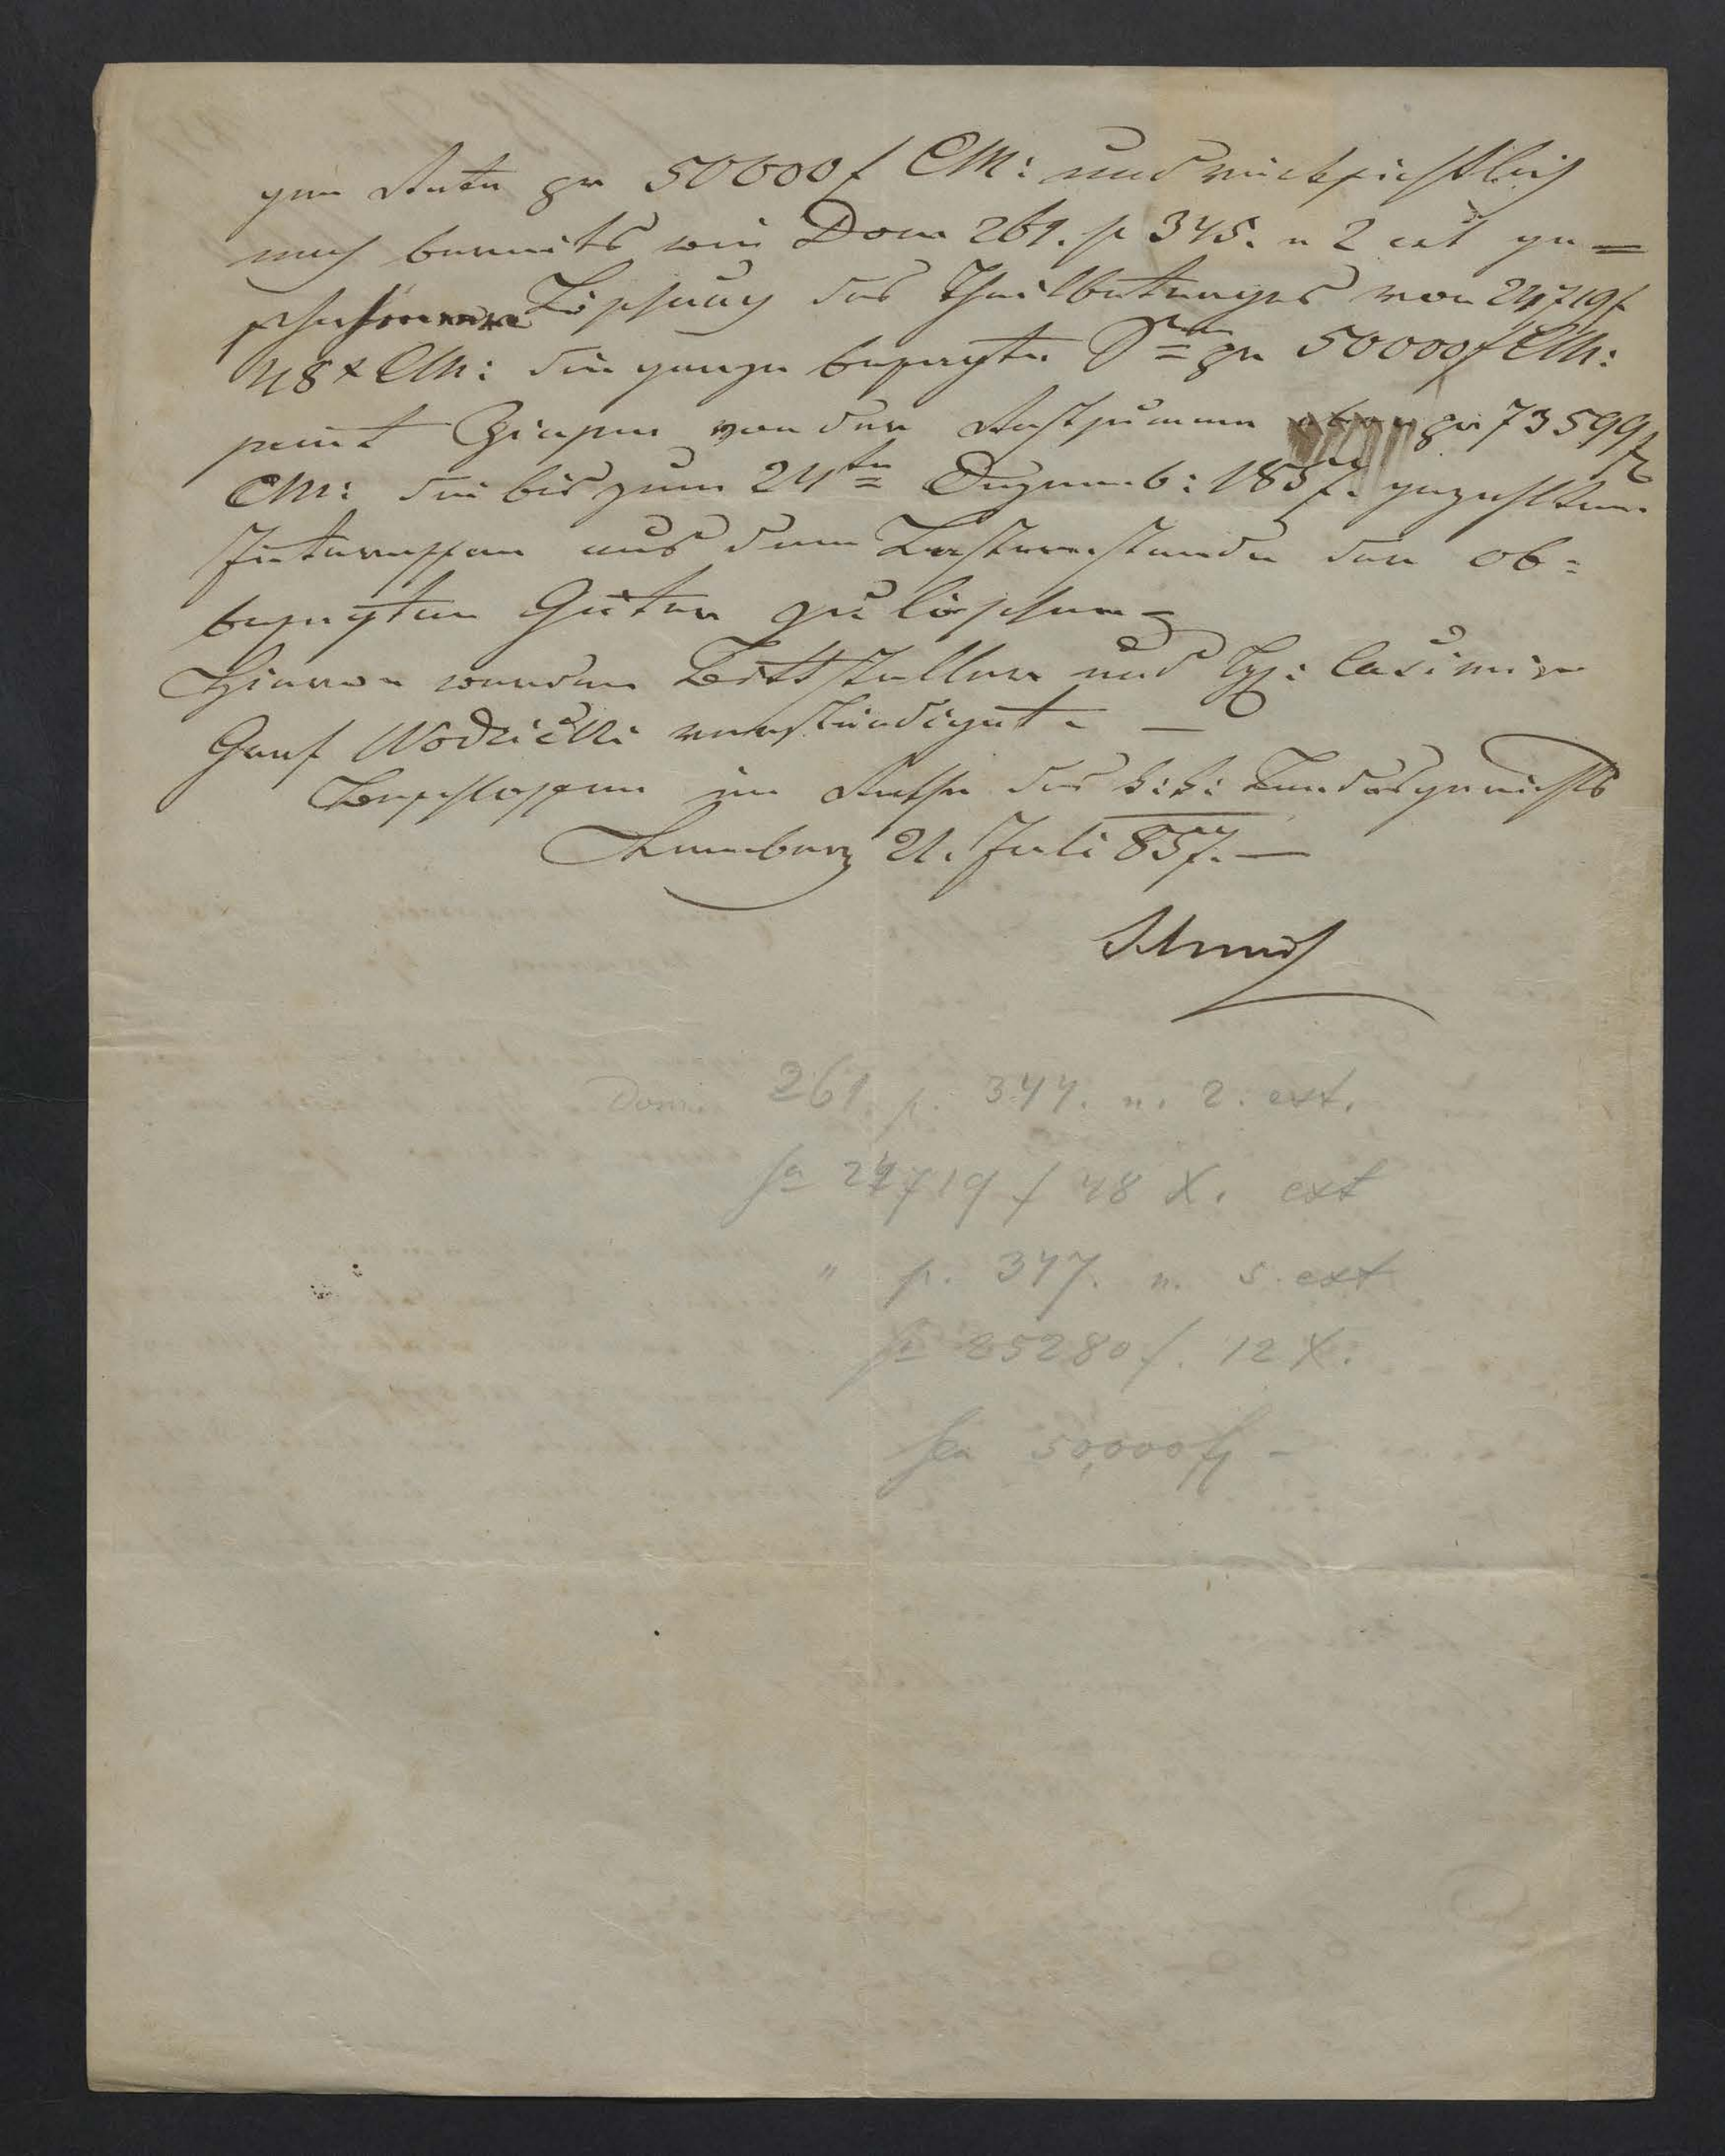 gen Rate pr 50000 f CM: und rücksichtlich
nach bereits wie Dom 261. p 345. n 2 ext ge=
schehener Löschung des Theilbetrages von 24719 f
48 x CM: die ganze besagte S pr 50000 f CM:
samt Zinsen von der Restsumme pr 73599 f
CM: die bis zum 24ten Dezemb: 185 gezahlten
Interessen aus dem Lastenstande der ob=
besagten Güter zu löschen
Hievon werden Bittsteller und H: Casimir
Graf Wodzicki verständigt. —
Beschlossen im Rathe des k: k: Landesgerichts
Lemberg 21. Juli 857. —
Dom. 261. p. 344. n. 2. ext.
fa 24719 f 48 X. ext
" p. 347. n. 5. ext
fa 25280 f. 12 X.
50,000 f –